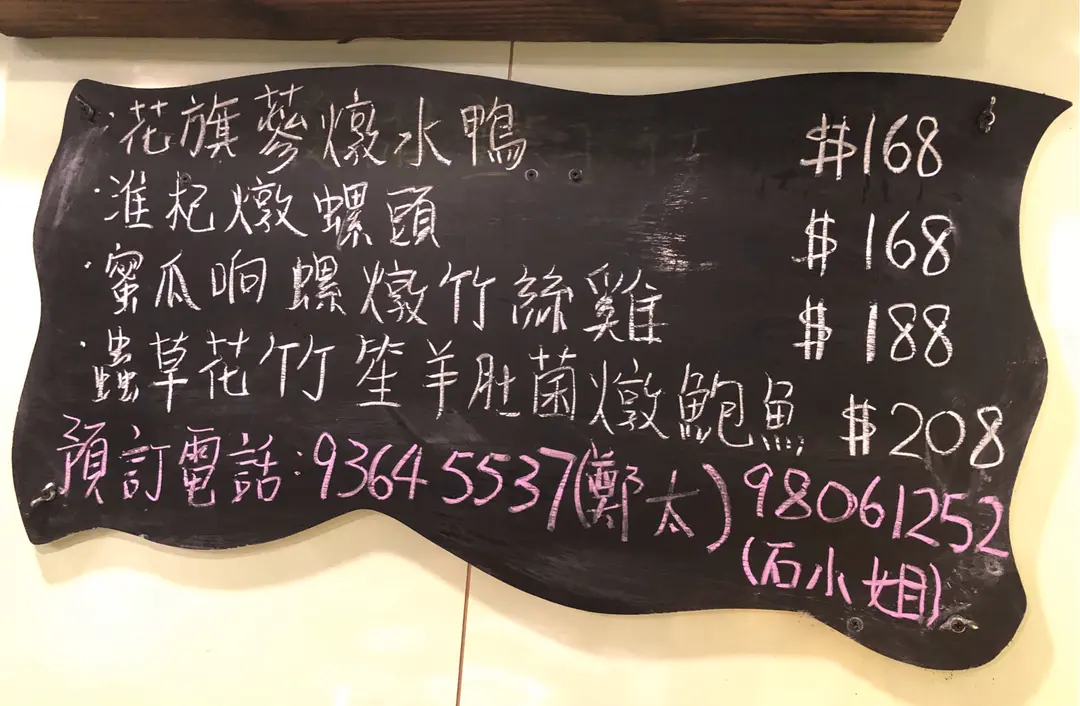 ·花旗蔘燉水鴨 $168
·淮杞燉螺頭 $168
·蜜瓜响螺燉竹絲雞 $188
·蟲草花竹笙羊肚菌燉鮑魚 $208
預訂電話:9364 5537(鄭太) 98061252
(石小姐)